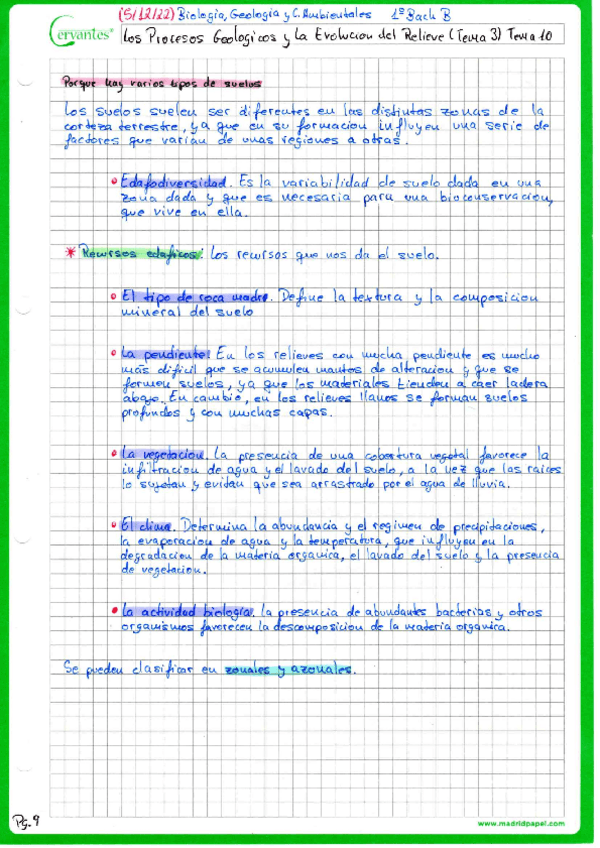 (5/12/22) Biologia, Geologia y C. Ambientales 1º Bach B
Cervantes®
Los Procesos Geologicos y La Evolucion del Relieve (Tema 3) Tema 10
Porque hay varios tipos de suelos
Los suelos suelen ser diferentes en las distintas zonas de la
corteza terrestre, ya que en su formacion influyen una serie de
factores que varian de unas regiones a otras.
Edafodiversidad. Es la variabilidad de suelo dada en una
zona dada y que es necesaria para una bioconservacion,
que vive en ella.
* Recursos edaficos: Los recursos que nos da el suelo.
El tipo de roca madre. Define la textura y la composicion
mineral del suelo
La pendiente: En los relieves con mucha pendiente es mucho
más dificil que se acumulen mantos de alteracion y que se
formen suelos, ya que los materiales tienden a caer ladera
abajo. En cambio, en los relieves llanos se forman suelos
profundos y con muchas capas.
La vegetacion. La presencia de una cobertura vegetal favorece la
infiltracion de agua y el lavado del suelo, a la vez que las raices
lo sujetan y evitan que sea arrastrado por el agua de lluvia.
El clima. Determina la abundancia y el regimen de precipitaciones,
la evaporacion de agua y la temperatura, que influyen en la
degradacion de la materia organica, el lavado del suelo y la presencia
de vegetacion.
La actividad biologia. La presencia de abundantes bacterias y otros
organismos favorecen la descomposicion de la materia organica.
Se pueden clasificar en zonales y azonales.
Pg. 9
www.madridpapel.com